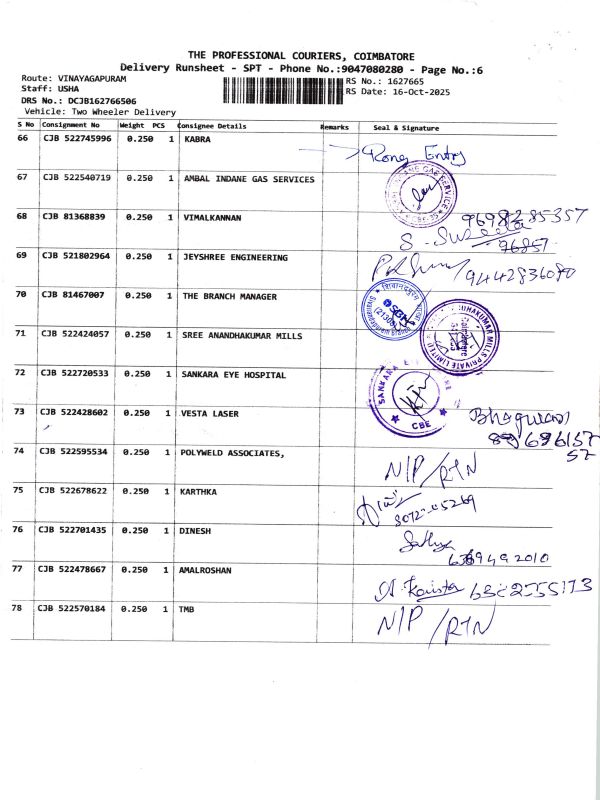 THE PROFESSIONAL COURIERS, COIMBATORE
Delivery Runsheet - SPT - Phone No.:9047080280 - Page No.:6
Route: VINAYAGAPURAM
Staff: USHA
DRS No.: DCJB162766506
Vehicle: Two Wheeler Delivery
RS No.: 1627665
RS Date: 16-Oct-2025
S No Consignment No Weight PCS Consignee Details Remarks Seal & Signature
66 CJB 522745996 0.250 1 KABRA Rong Entry
67 CJB 522540719 0.250 1 AMBAL INDANE GAS SERVICES
68 CJB 81368839 0.250 1 VIMALKANNAN
S. Suseela
76857
69 CJB 521802964 0.250 1 JEYSHREE ENGINEERING 9442836080
70 CJB 81467007 0.250 1 THE BRANCH MANAGER SBI
71 CJB 522424057 0.250 1 SREE ANANDHAKUMAR MILLS
MILLS PRIVATE LIMITED
72 CJB 522720533 0.250 1 SANKARA EYE HOSPITAL
SANKARA CBE
73 CJB 522428602 0.250 1 VESTA LASER
57
74 CJB 522595534 0.250 1 POLYWELD ASSOCIATES, N/P /RTN
75 CJB 522678622 0.250 1 KARTHKA
76 CJB 522701435 0.250 1 DINESH Sathya
77 CJB 522478667 0.250 1 AMALROSHAN
78 CJB 522570184 0.250 1 TMB N/P /RTN